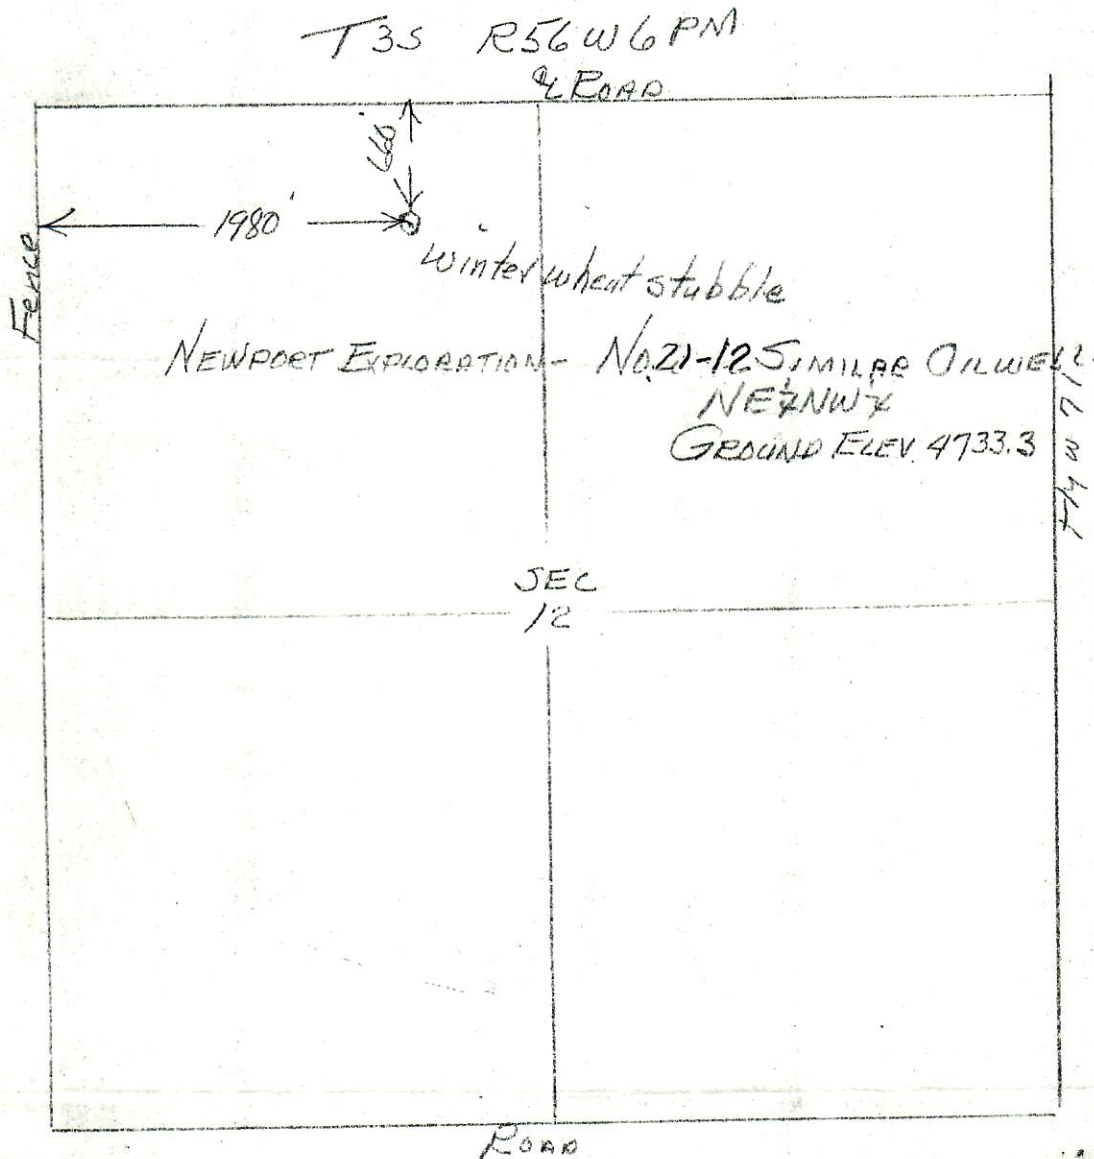 T3S R56W 6PM
℄ ROAD
660
1980'
Fence
winter wheat stubble
NEWPORT EXPLORATION - NO. 21-12 SIMILAR OILWELL
NE¼NW¼
GROUND ELEV. 4733.3
Hy w 71
SEC
12
ROAD